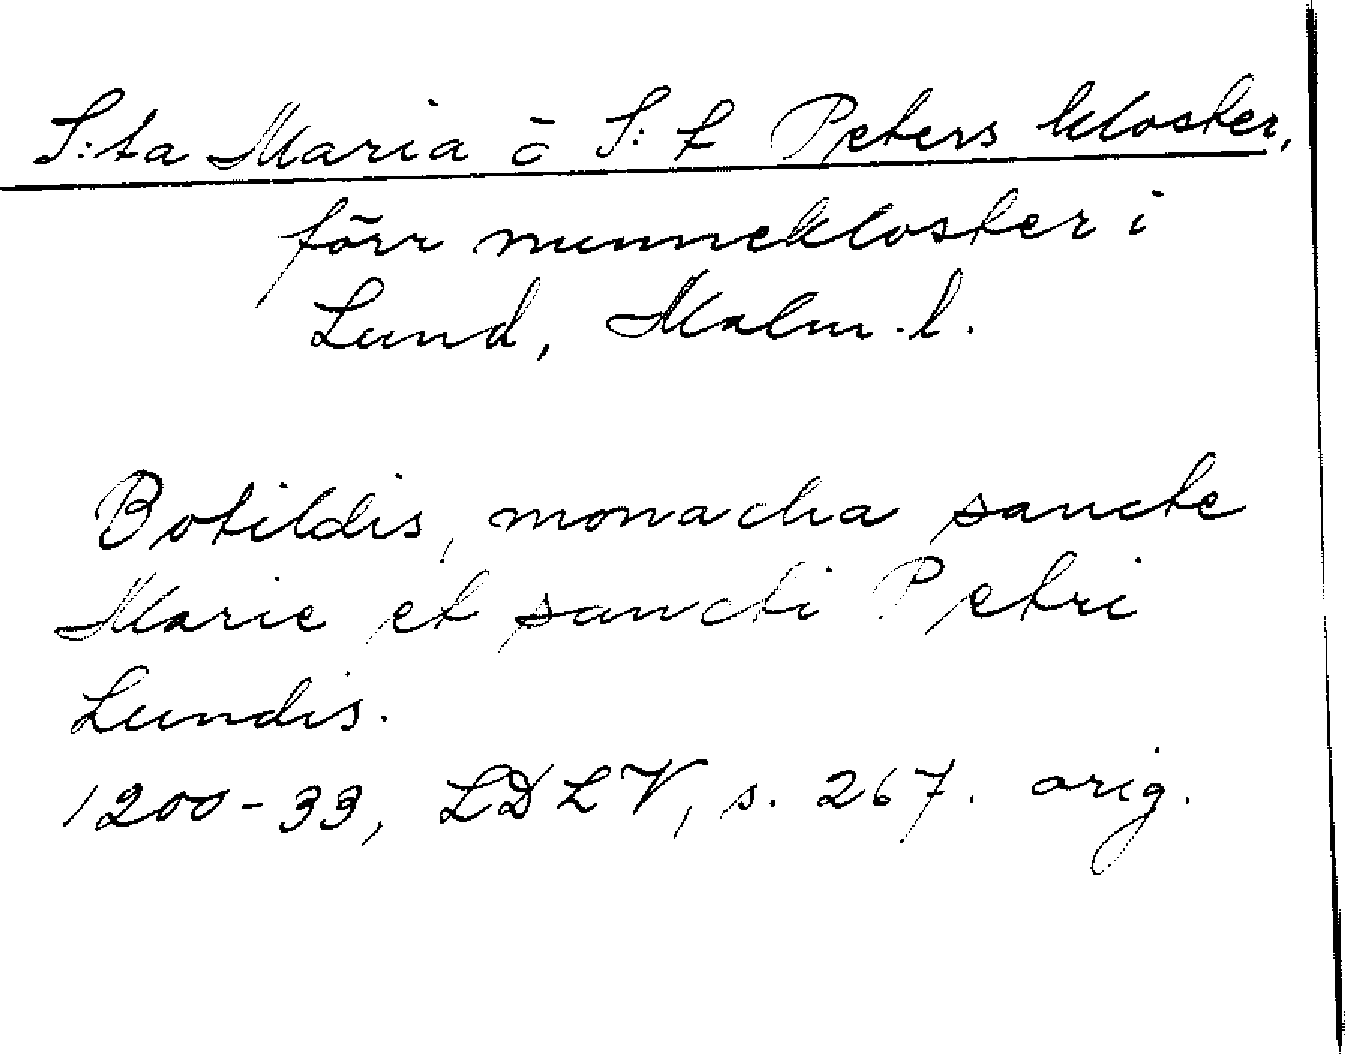 S:ta Maria o S:t Peters kloster,
förr nunnekloster i
Lund, Malm. l.
Botildis, monacha sancte
Marie et sancti Petri
Lundis.
1200-33, LDLV, s. 267. orig.